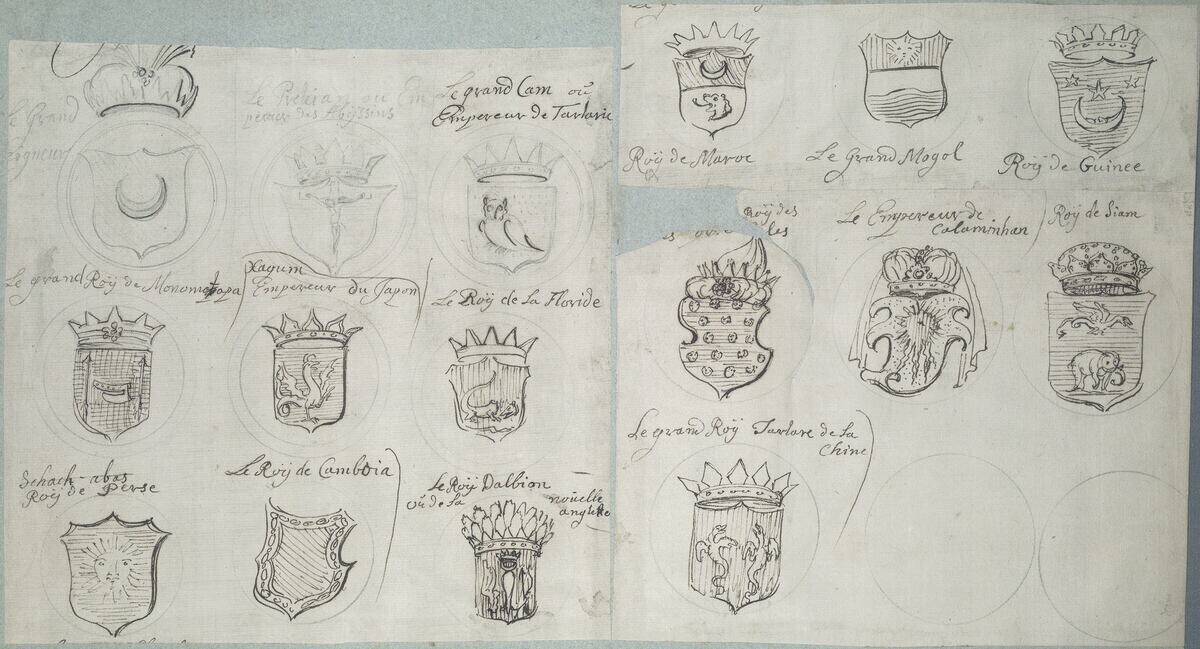 Le Grand
Seigneur
Le Pretian ou Em
pereur des Abyssins
Le grand Cam où
Empereur de Tartarie
Le grand Roÿ de Monomotapa
Xagum
Empereur du Japon
Le Roÿ de la Floride
Schach-abas
Roÿ de Perse
Le Roÿ de Camboia
Le Roÿ Dalbion
oü de la noüelle
angleté
Roÿ de Maroc
Le Grand Mogol
Roÿ de Guinee
Roÿ des
Le Empereur de
Calaminhan
Roÿ de Siam
Le grand Roÿ Tartare de la
Chine